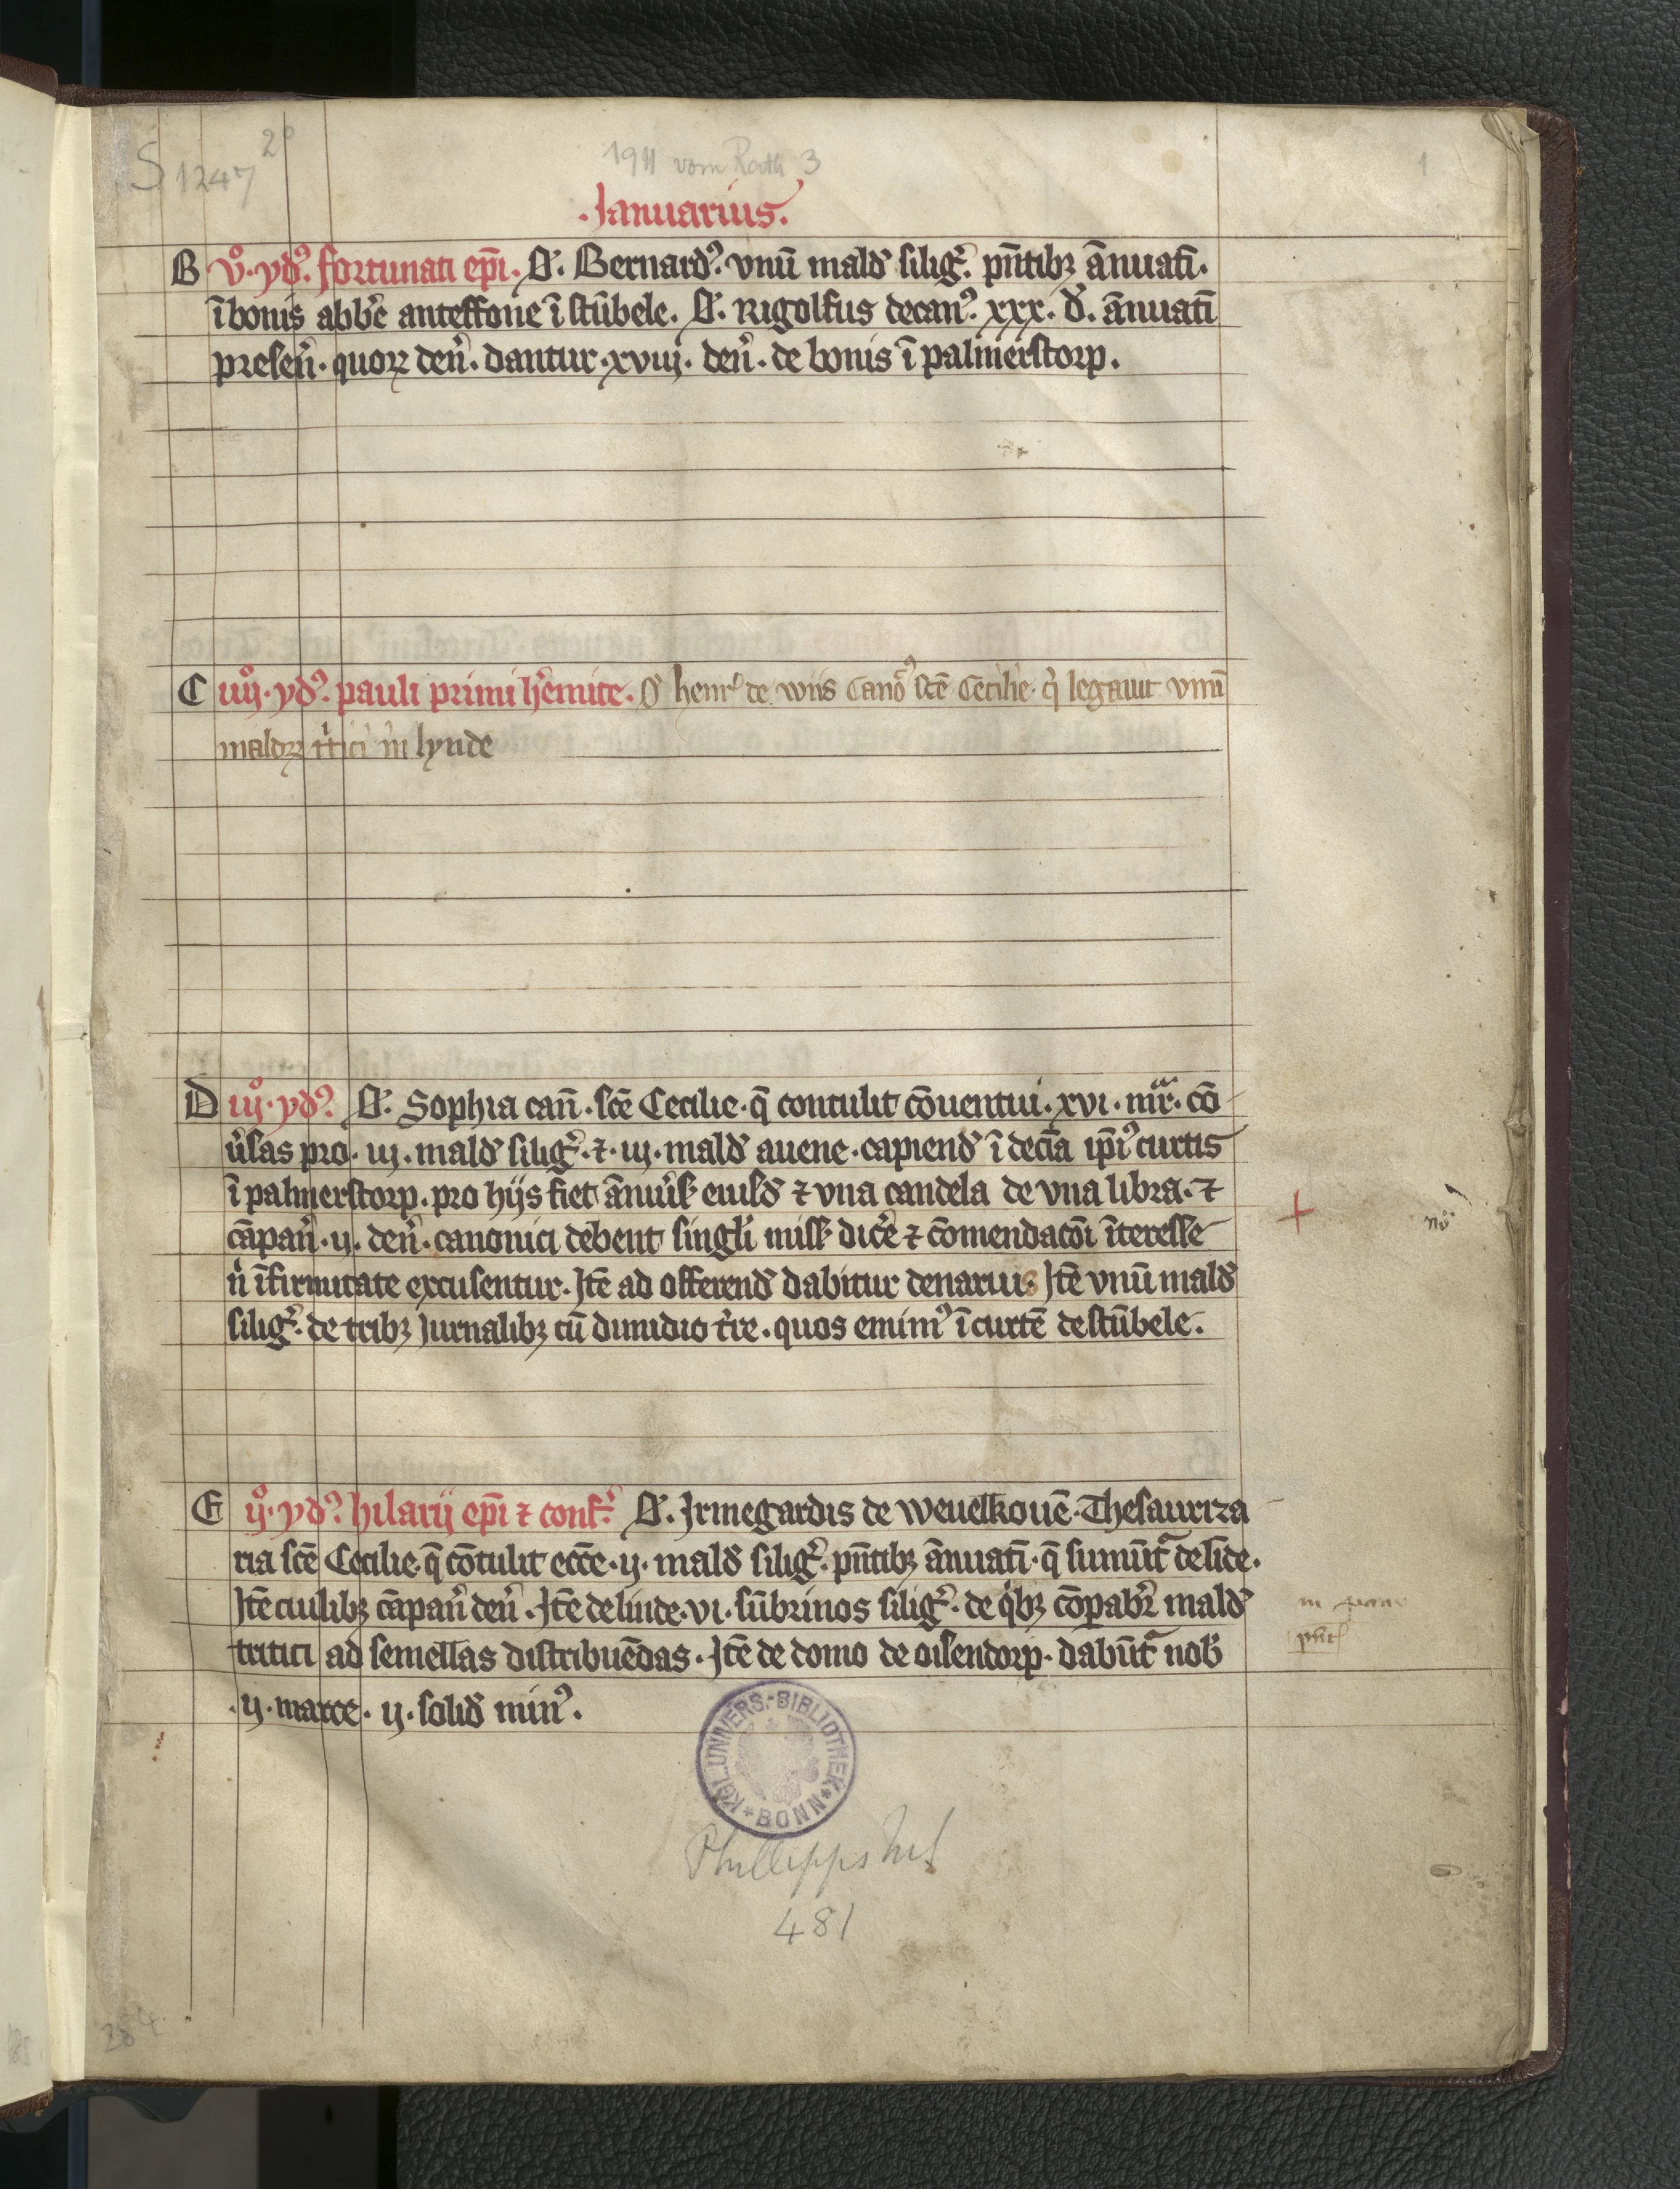 S 1247 2°
1911 vom Rath 3
1
.Januarius.
B v°. yd᷒. fortunati ep̄i. O᷒. Bernard᷒. vnū mald᷒ silig᷒. pn̄tibꝫ ān̄uati.
ī bonis abb̄e anteffone ī stūbele. O᷒. Rigolfus decan᷒. xxx. d᷒. ān̄uatī
presen̄. quoꝝ den̄. dantur. xviij. den̄. de bonis ī palmerstorp.
C iiij°. yd᷒. pauli primi h̄emite. O᷒ henr᷒ de wiis Canō᷒ sc̄e Cecilie. q̇ legauit vnū
maldꝝ t̄tici in lynde
D iij°. yd᷒. O᷒. Sophia can̄. sc̄e Cecilie. q̄ contulit cōuentui. xvi. mr̄. cō
ūsas pro. iij. mald᷒ silig᷒. ⁊. iij. mald᷒ auene. capiend᷒ ī decīa ip̄i᷒ curtis
ī palmerstorp. pro hijs fiet ān̄iūs eiusd᷒ ⁊ vna candela de vna libra. ⁊
cāpan̄. ij. den̄. canonici dēbent singl̄i miss᷒ dic̄e ⁊ cōmendacōī īteresse
n̄ īfirmitate excusentur. Jtē ad offerend᷒ dabitur denarius Jtē vnū mald᷒
silig᷒. de tribꝫ Jurnalibꝫ cū dimidio t̄re. quos emim᷒ ī curtē de stūbele.
nō
E ij°. yd᷒. hilarij ep̄i ⁊ conf᷒. O᷒. Jrmegardis de weuelkouē. Thesaurıza
ria sc̄e Cecilie. q̄ cōtulit ecc̄e. ij. mald᷒ silig᷒. pn̄tibꝫ ān̄uatī. q̄ sumūt᷒ de līde.
Jtē ciuilibꝫ cāpan̄ den̄. Jtē de linde. vi. sūbrinos silig᷒. de q̇bꝫ cōpabr̄ mald᷒
tritici ad semellas distribuēdas. Jtē de domo de oisendorp. dabūt᷒ nob᷒
.ij. marce. ij. solid᷒ min᷒.
KGL. UNIVERS.-BIBLIOTHEK * BONN *
Phillipps Ms
481
284